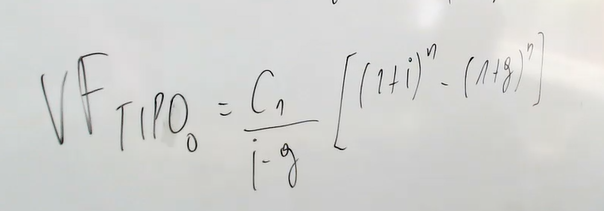 VF TIPO₀ = C₁ / (i-g) [(1+i)ⁿ - (1+g)ⁿ]